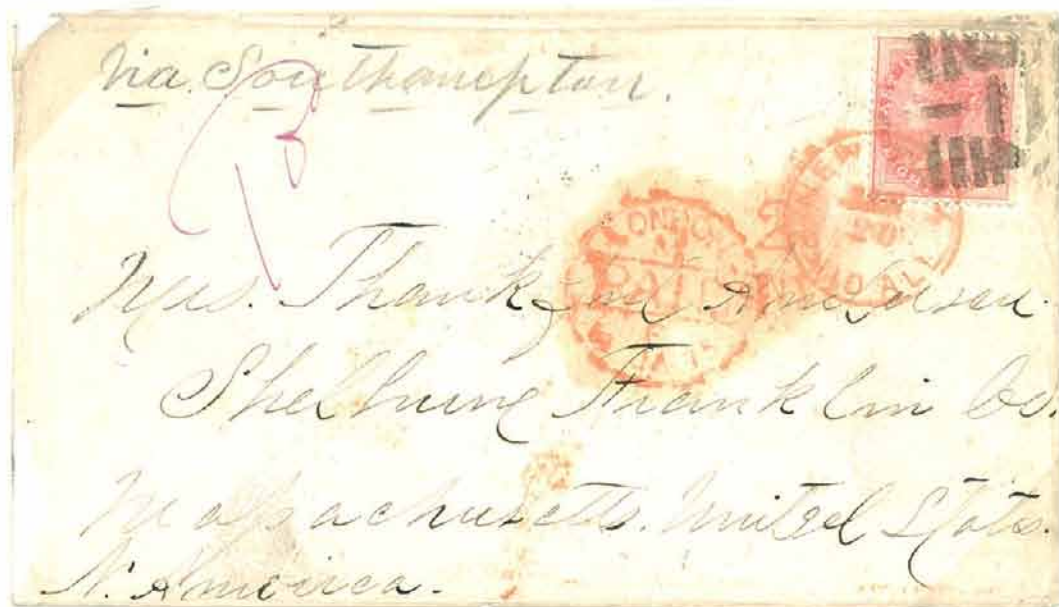 Via Southampton.
LONDON
PAID
NEW
ALL
Mrs. Thankful Anderson.
Shelburne Franklin Co.
Massachusetts. United States.
N. America.